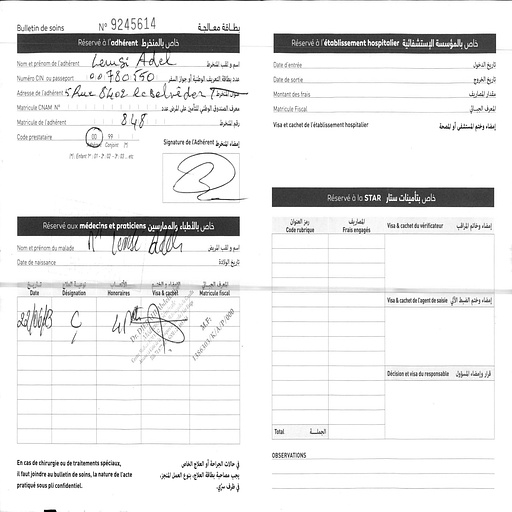 Bulletin de soins N° 9245614 بطاقة معالجة
Réservé à l'adhérent خاص بالمنخرط
Nom et prénom de l'adhérent Lemsi Adel اسم و لقب المنخرط
Numéro CIN ou passeport 00780150 عدد بطاقة التعريف الوطنية أو جواز السفر
Adresse de l'adhérent 5 Rue 8402 le belvédère T عنوان المنخرط
Matricule CNAM N° معرف الصندوق الوطني للتأمين على المرض عدد
Matricule de l'adhérent 848 رقم المنخرط
Code prestataire 00 99
Adhérent Conjoint
Signature de l'Adhérent إمضاء المنخرط
Réservé aux médecins et praticiens خاص بالأطباء والممارسين
Nom et prénom du malade Mr Lemsi Adel اسم و لقب المريض
Date de naissance تاريخ الولادة
Date
Désignation
Honoraires
Visa & cachet
Matricule fiscal
C
En cas de chirurgie ou de traitements spéciaux,
il faut joindre au bulletin de soins, la nature de l'acte
pratiqué sous pli confidentiel.
في حالات الجراحة أو العلاج الخاص
يجب مصاحبة بطاقة العلاج، بنوع العمل المنجز،
في ظرف سرّي.
Réservé à l'établissement hospitalier خاص بالمؤسسة الإستشفائية
Date d'entrée تاريخ الدخول
Date de sortie تاريخ الخروج
Montant des frais مقدار المصاريف
Matricule Fiscal المعرف الجبائي
Visa et cachet de l'établissement hospitalier إمضاء وختم المستشفى أو المصحة
Réservé à la STAR خاص بتأمينات ستار
رمز العنوان
Code rubrique
المصاريف
Frais engagés
Visa & cachet du vérificateur إمضاء وخاتم المراقب
Visa & cachet de l'agent de saisie إمضاء وختم الضبط الآلي
Décision et visa du responsable قرار وإمضاء المسؤول
Total الجملة
OBSERVATIONS